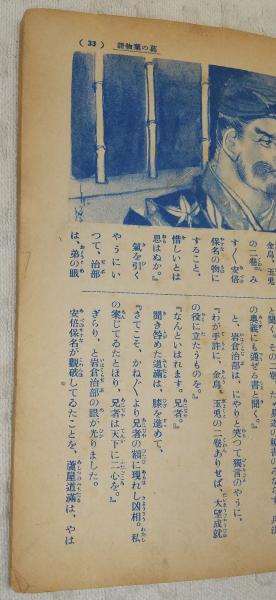 (33) 葛の葉物語
と聞く。
の奥義にも通ぜる書と聞く。』
と、岩倉治部は、にやりと笑つて獨言のやうに、
『わが手許に、金烏、玉兎の二卷ありせば、大望成就
の役に立たうものを。』
『なんといはれます。兄者。』
聞き咎めた道滿は、膝を進めて、
『さてこそ、かねぐより兄者の額に現れし凶相。私
の案じてゐたとほり、兄者は天下に二心を。』
ぎらり、と岩倉治部の眼が光りました。
安倍保名が觀破してゐたことを、蘆屋道滿は、やは
金烏、玉兎
の二卷、み
すく安倍
保名の物に
すること、
惜しいとは
思はぬか。』
氣を引く
やうにい
つて、治部
は、弟の眼